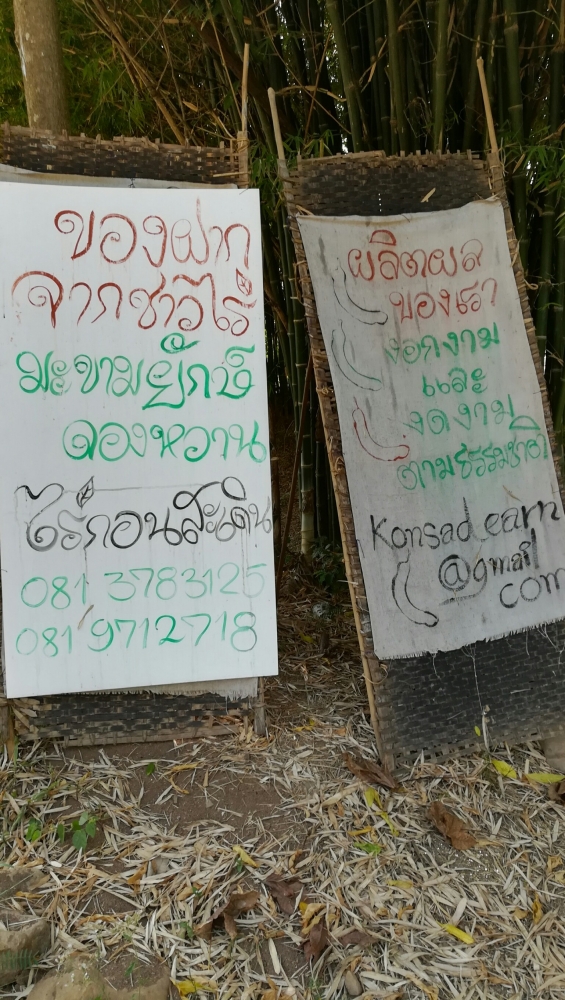 ของฝาก
จากชาวไร่
มะขามยักษ์
ดองหวาน
ไร่ก่อนสะเดิน
081 3783125
081 9712718
ผลิตผล
ของเรา
งอกงาม
และ
งดงาม
ตามธรรมชาติ
KonsadLearn
@gmail
com